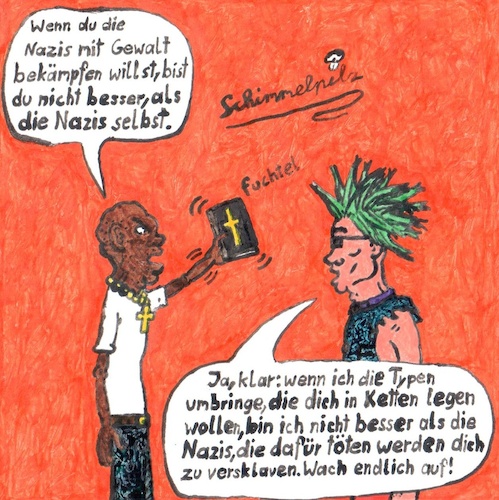 Wenn du die
Nazis mit Gewalt
bekämpfen willst, bist
du nicht besser, als
die Nazis selbst.
Schimmelpilz
fuchtel
Ja, klar: wenn ich die Typen
umbringe, die dich in Ketten legen
wollen, bin ich nicht besser als die
Nazis, die dafür töten werden dich
zu versklaven. Wach endlich auf!